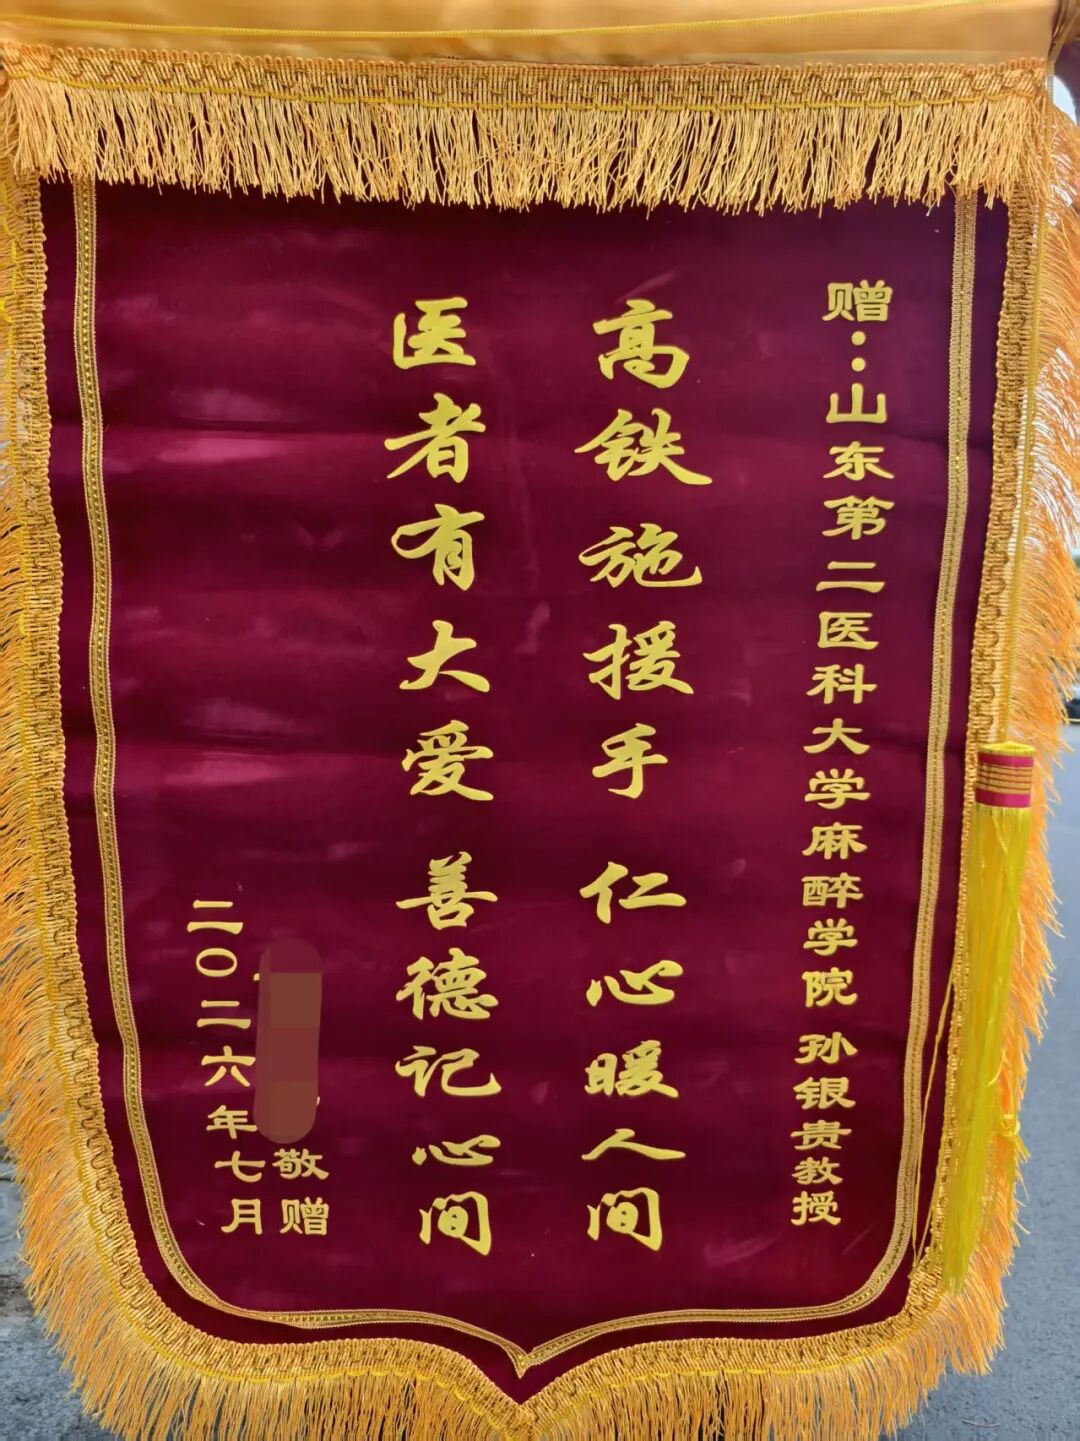 赠：山东第二医科大学麻醉学院 孙银贵教授
高铁施援手 仁心暖人间
医者有大爱 善德记心间
敬赠
二〇二六年七月